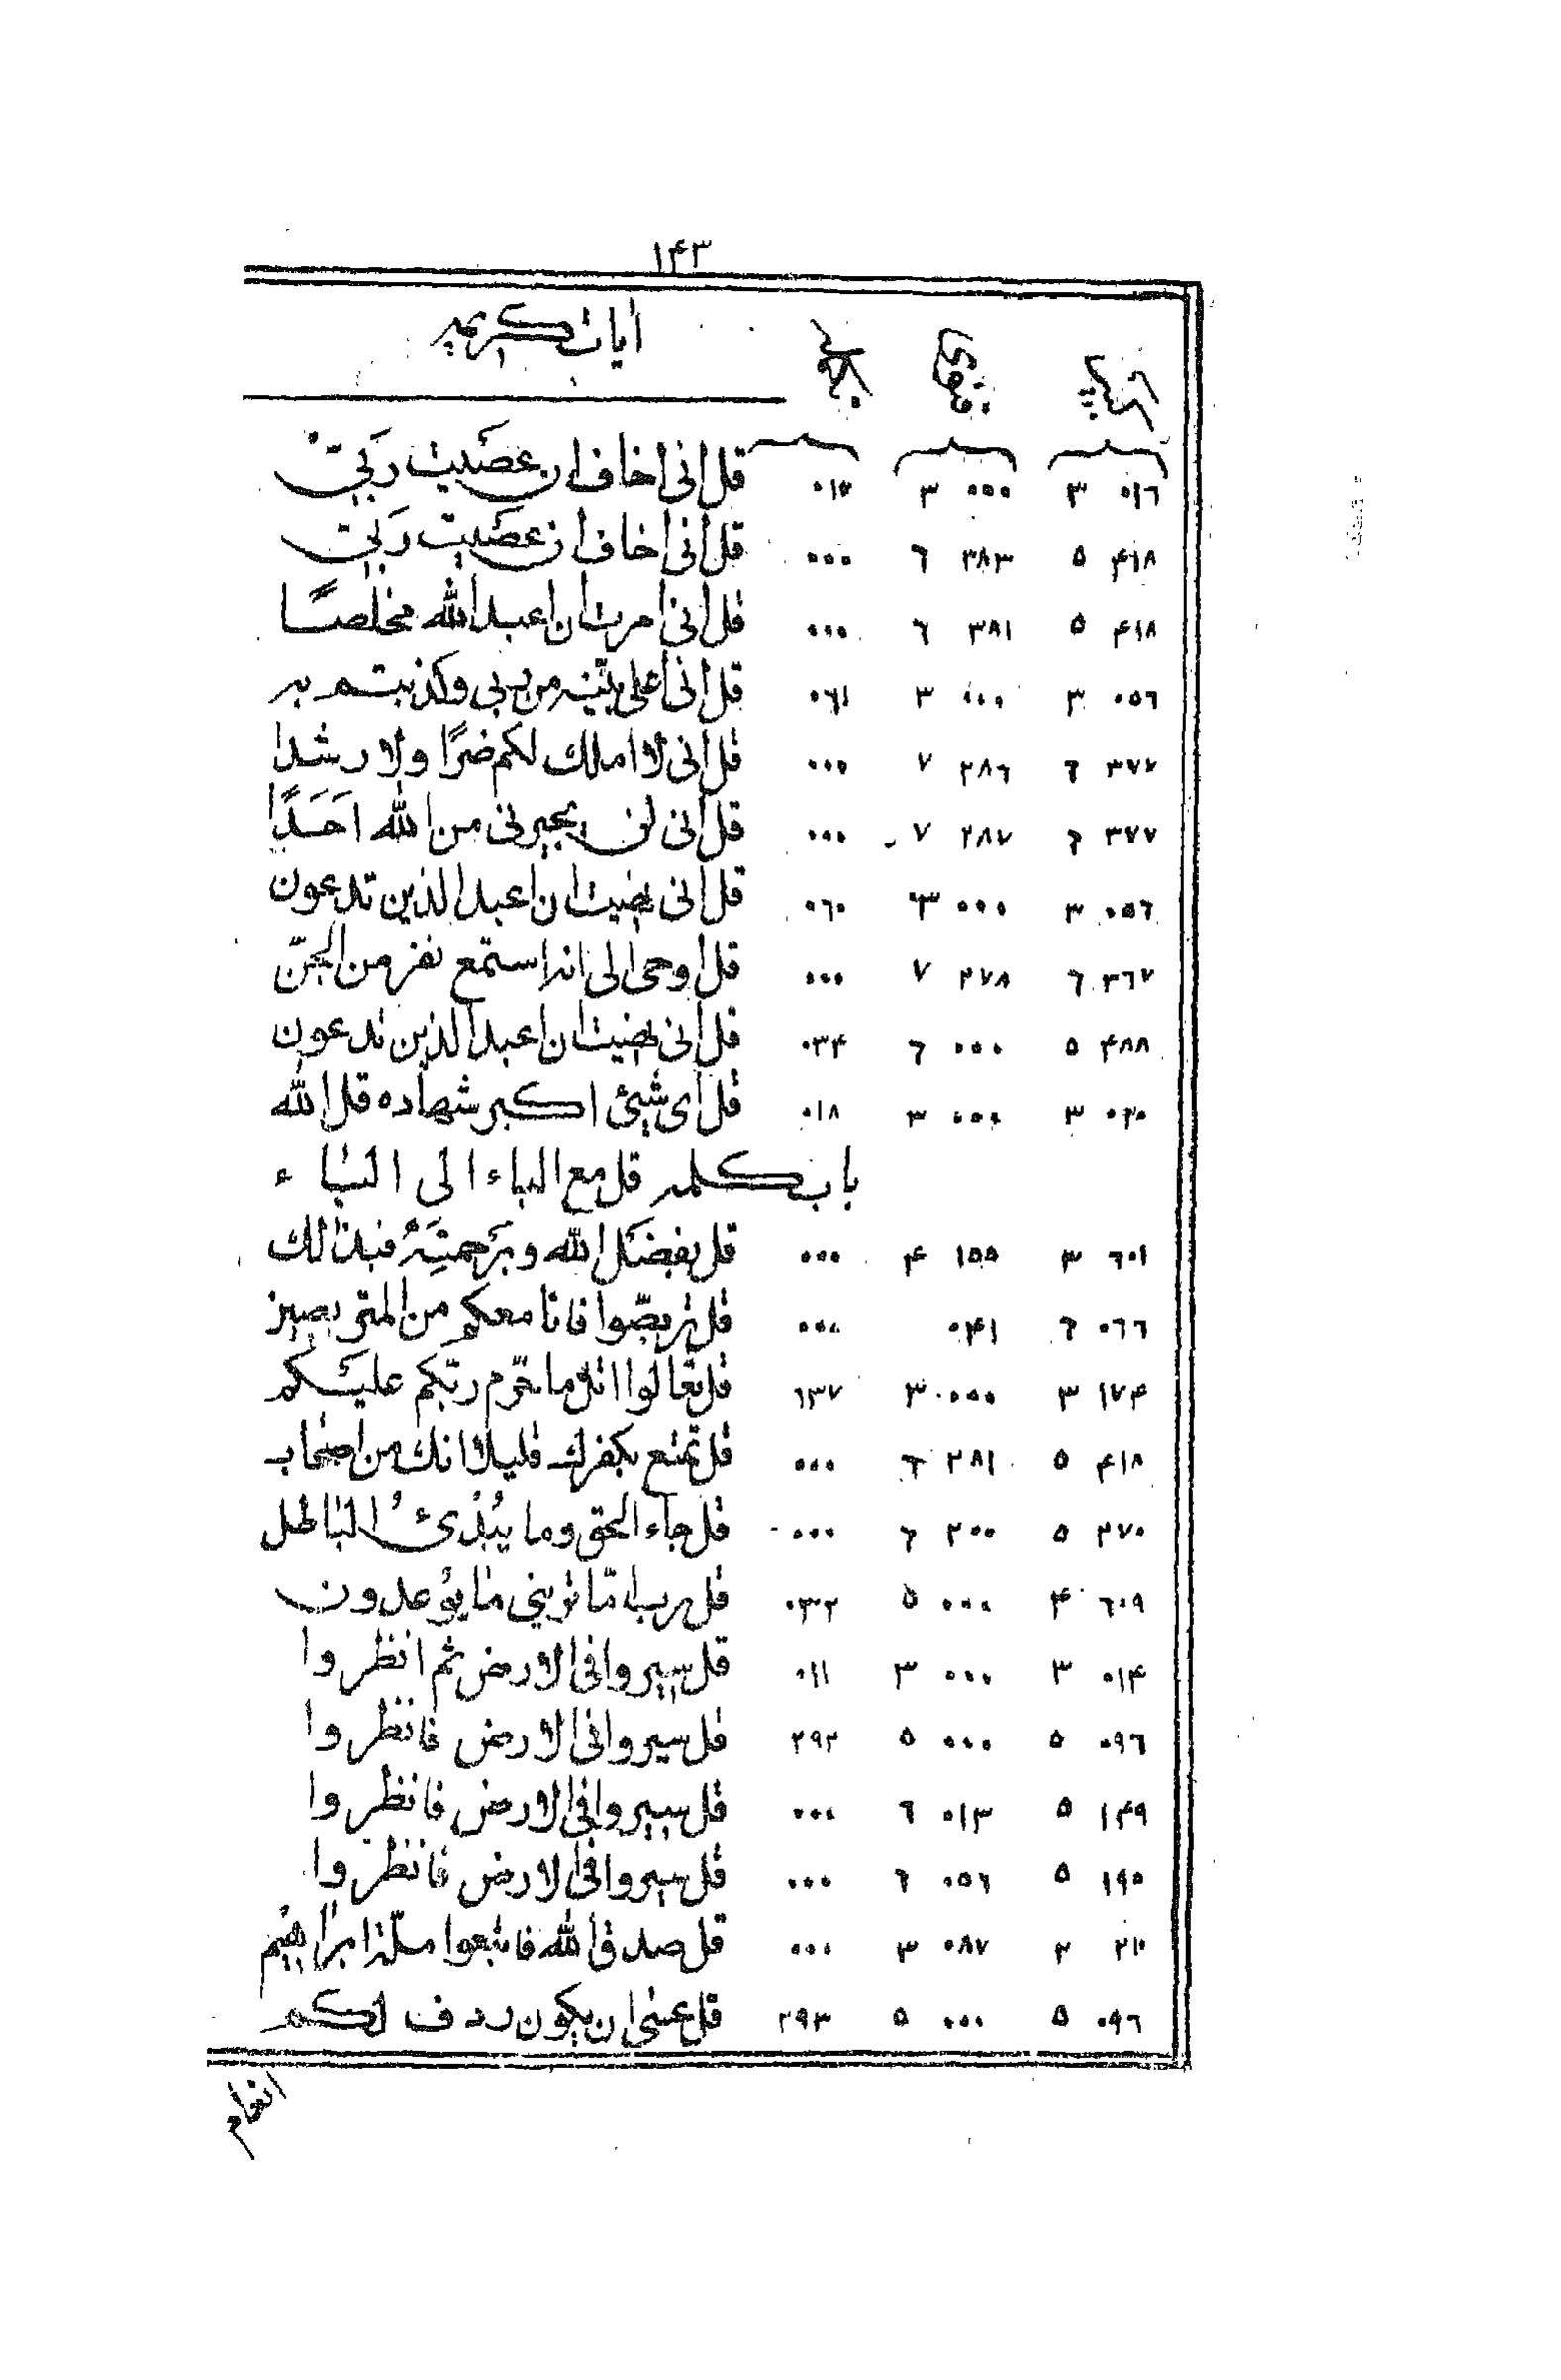 ١۴٣
ايات كريمه
٠١٦ ٣ ٠٠٠ ٣ ٠١٧ قل انى اخاف ان عصَيت رَبّى
۴١٨ ٥ ٣٨٣ ٦ ٠٠٠ قل انى اخاف ان عصَيت رَبّى
۴١٨ ٥ ٣٨١ ٦ ٠٠٠ قل انى امرت ان اعبد الله مخلصًا
٠٥٦ ٣ ٠٠٠ ٣ ٠٦١ قل انى على بيّنه من ربى وكذبتم به
٣٧٧ ٦ ٢٨٦ ٧ ٠٠٠ قل انى لا املك لكم ضرًا ولا رشدا
٣٧٧ ٦ ٢٨٧ ٧ ٠٠٠ قل انى لن يجيرنى من الله احَدًا
٠٥٦ ٣ ٠٠٠ ٣ ٠٦٠ قل انى نهيت ان اعبد الذين تدعون
٣٦٧ ٦ ٢٧٨ ٧ ٠٠٠ قل اوحى الى انه استمع نفر من الجنّ
۴٨٨ ٥ ٠٠٠ ٦ ٠٣۴ قل انى نهيت ان اعبد الذين تدعون
٠٢٠ ٣ ٠٠٠ ٣ ٠١٨ قل اى شيئ اكبر شهاده قل الله
باب كلمه قل مع الباء الى الياء
٦٠١ ٣ ١٥٥ ۴ ٠٠٠ قل بفضَل الله وبرَحمتِهُ فبذالك
٠٦٦ ٦ ٠۴١ ٠٠٠ قل تربصّوا فانا معكم من المتربصين
١٧۴ ٣ ٠٠٠ ٣ ١٣٧ قل تعالوا اتل ما حرّم ربّكم عليكم
۴١٨ ٥ ٢٨١ ٦ ٠٠٠ قل تمتع بكفرك قليلا انك من اصحاب
٢٧٠ ٥ ٢٠٠ ٦ ٠٠٠ قل جاء الحق وما يُبْدىُٔ الباطل
٦٠٩ ۴ ٠٠٠ ٥ ٠٣٢ قل رب امّا ترينى ما يوعدون
٠١۴ ٣ ٠٠٠ ٣ ٠١١ قل سيروا فى الارض ثم انظروا
٠٩٦ ٥ ٠٠٠ ٥ ٢٩٢ قل سيروا فى الارض فانظروا
١۴٩ ٥ ٠١٣ ٦ ٠٠٠ قل سيروا فى الارض فانظروا
١٩٥ ٥ ٠٥٦ ٦ ٠٠٠ قل سيروا فى الارض فانظروا
٢١٠ ٢ ٠٨٧ ٣ ٠٠٠ قل صدق الله فاتبعوا ملّة ابراهيم
٠٩٦ ٥ ٠٠٠ ٥ ٢٩٣ قل عسى ان يكون ردف لكم
انعام